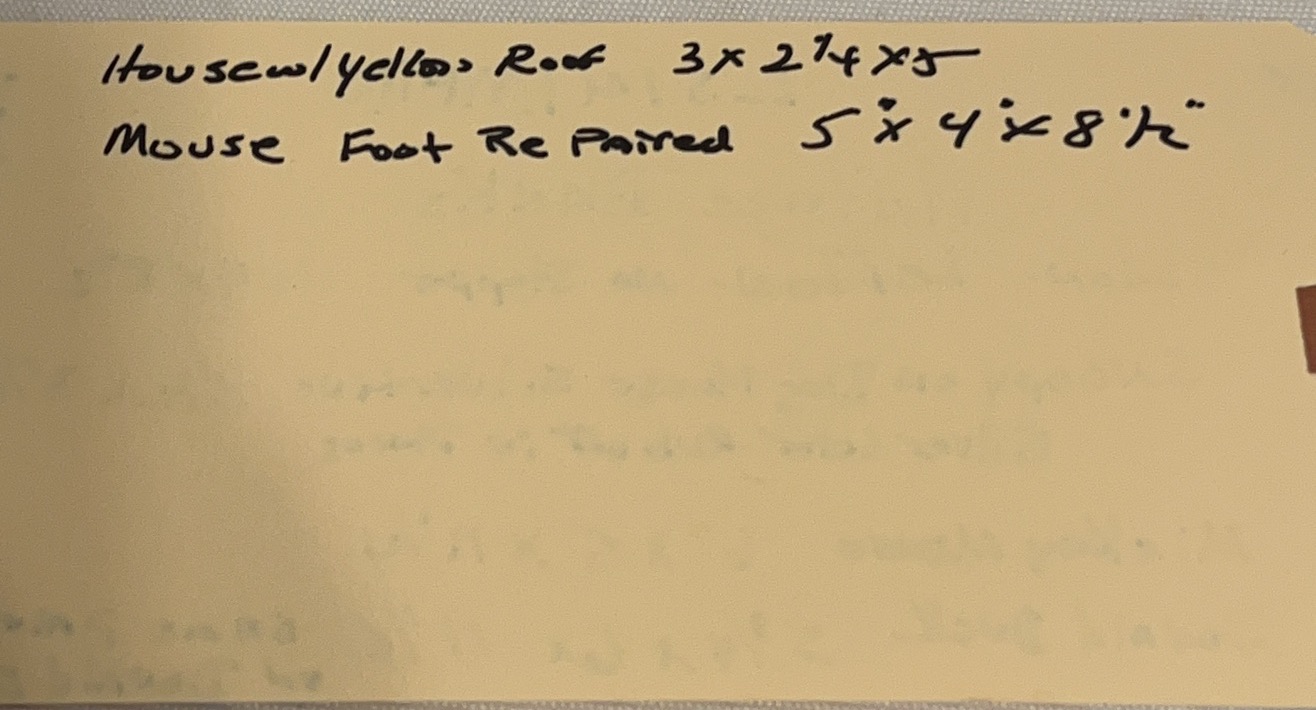 House w/ yellow Roof 3 x 2 1/4 x 5
Mouse Foot Re Paired 5" x 4" x 8 1/2"